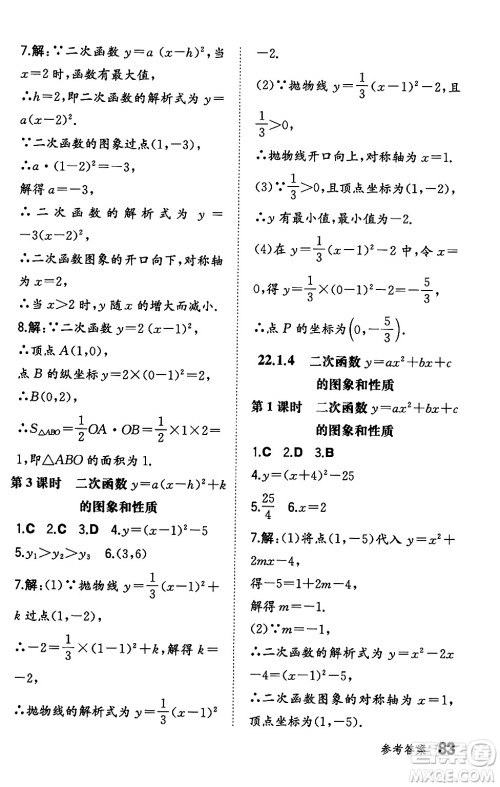 7.解:∵二次函数y=a(x-h)²,当
x=2时,函数有最大值,
∴h=2,即二次函数的解析式为y=
a(x-2)².
∵二次函数的图象过点(1,-3),
∴a·(1-2)²=-3,
解得a=-3,
∴二次函数的解析式为y=
-3(x-2)²,
∴二次函数图象的开口向下,对称轴
为x=2,
∴当x>2时,y随x的增大而减小.
8.解:∵二次函数y=2(x-1)²,
∴顶点A(1,0),
点B的纵坐标为2×(0-1)²=2,
∴B(0,2),
∴S△ABO=1/2OA·OB=1/2×1×2=
1,即△ABO的面积为1.
第3课时 二次函数y=a(x-h)²+k
的图象和性质
1.C 2.C 3.D 4.y=(x-1)²-5
5.y₁>y₂>y₃ 6.(3,6)
7.解:(1)∵抛物线y=1/3(x-1)²+
k过点(1,-2),
∴-2=1/3×(1-1)²+k,解得k=
-2;
∴抛物线的解析式为y=1/3(x-1)²
-2.
(2)∵抛物线y=1/3(x-1)²-2,且
1/3>0,
∴抛物线开口向上,对称轴为x=1.
(3)∵1/3>0,且顶点坐标为(1,-2),
∴y有最小值,最小值为-2.
(4)在y=1/3(x-1)²-2中,令x=
0,得y=1/3(0-1)²-2=-5/3,
∴点P的坐标为(0,-5/3).
22.1.4 二次函数y=ax²+bx+c
的图象和性质
第1课时 二次函数y=ax²+bx+c
的图象和性质
1.C 2.D 3.B
4.y=(x-4)²-25
5.25/4 6.x=2
7.解:(1)将点(1,-5)代入y=x²+
2mx-4,
得-5=1+2m-4,
解得m=-1.
(2)∵m=-1,
∴二次函数的解析式为y=x²-
2x-4=(x-1)²-5,
∴二次函数图象的对称轴为x=1,
顶点坐标为(1,-5).
参考答案 83